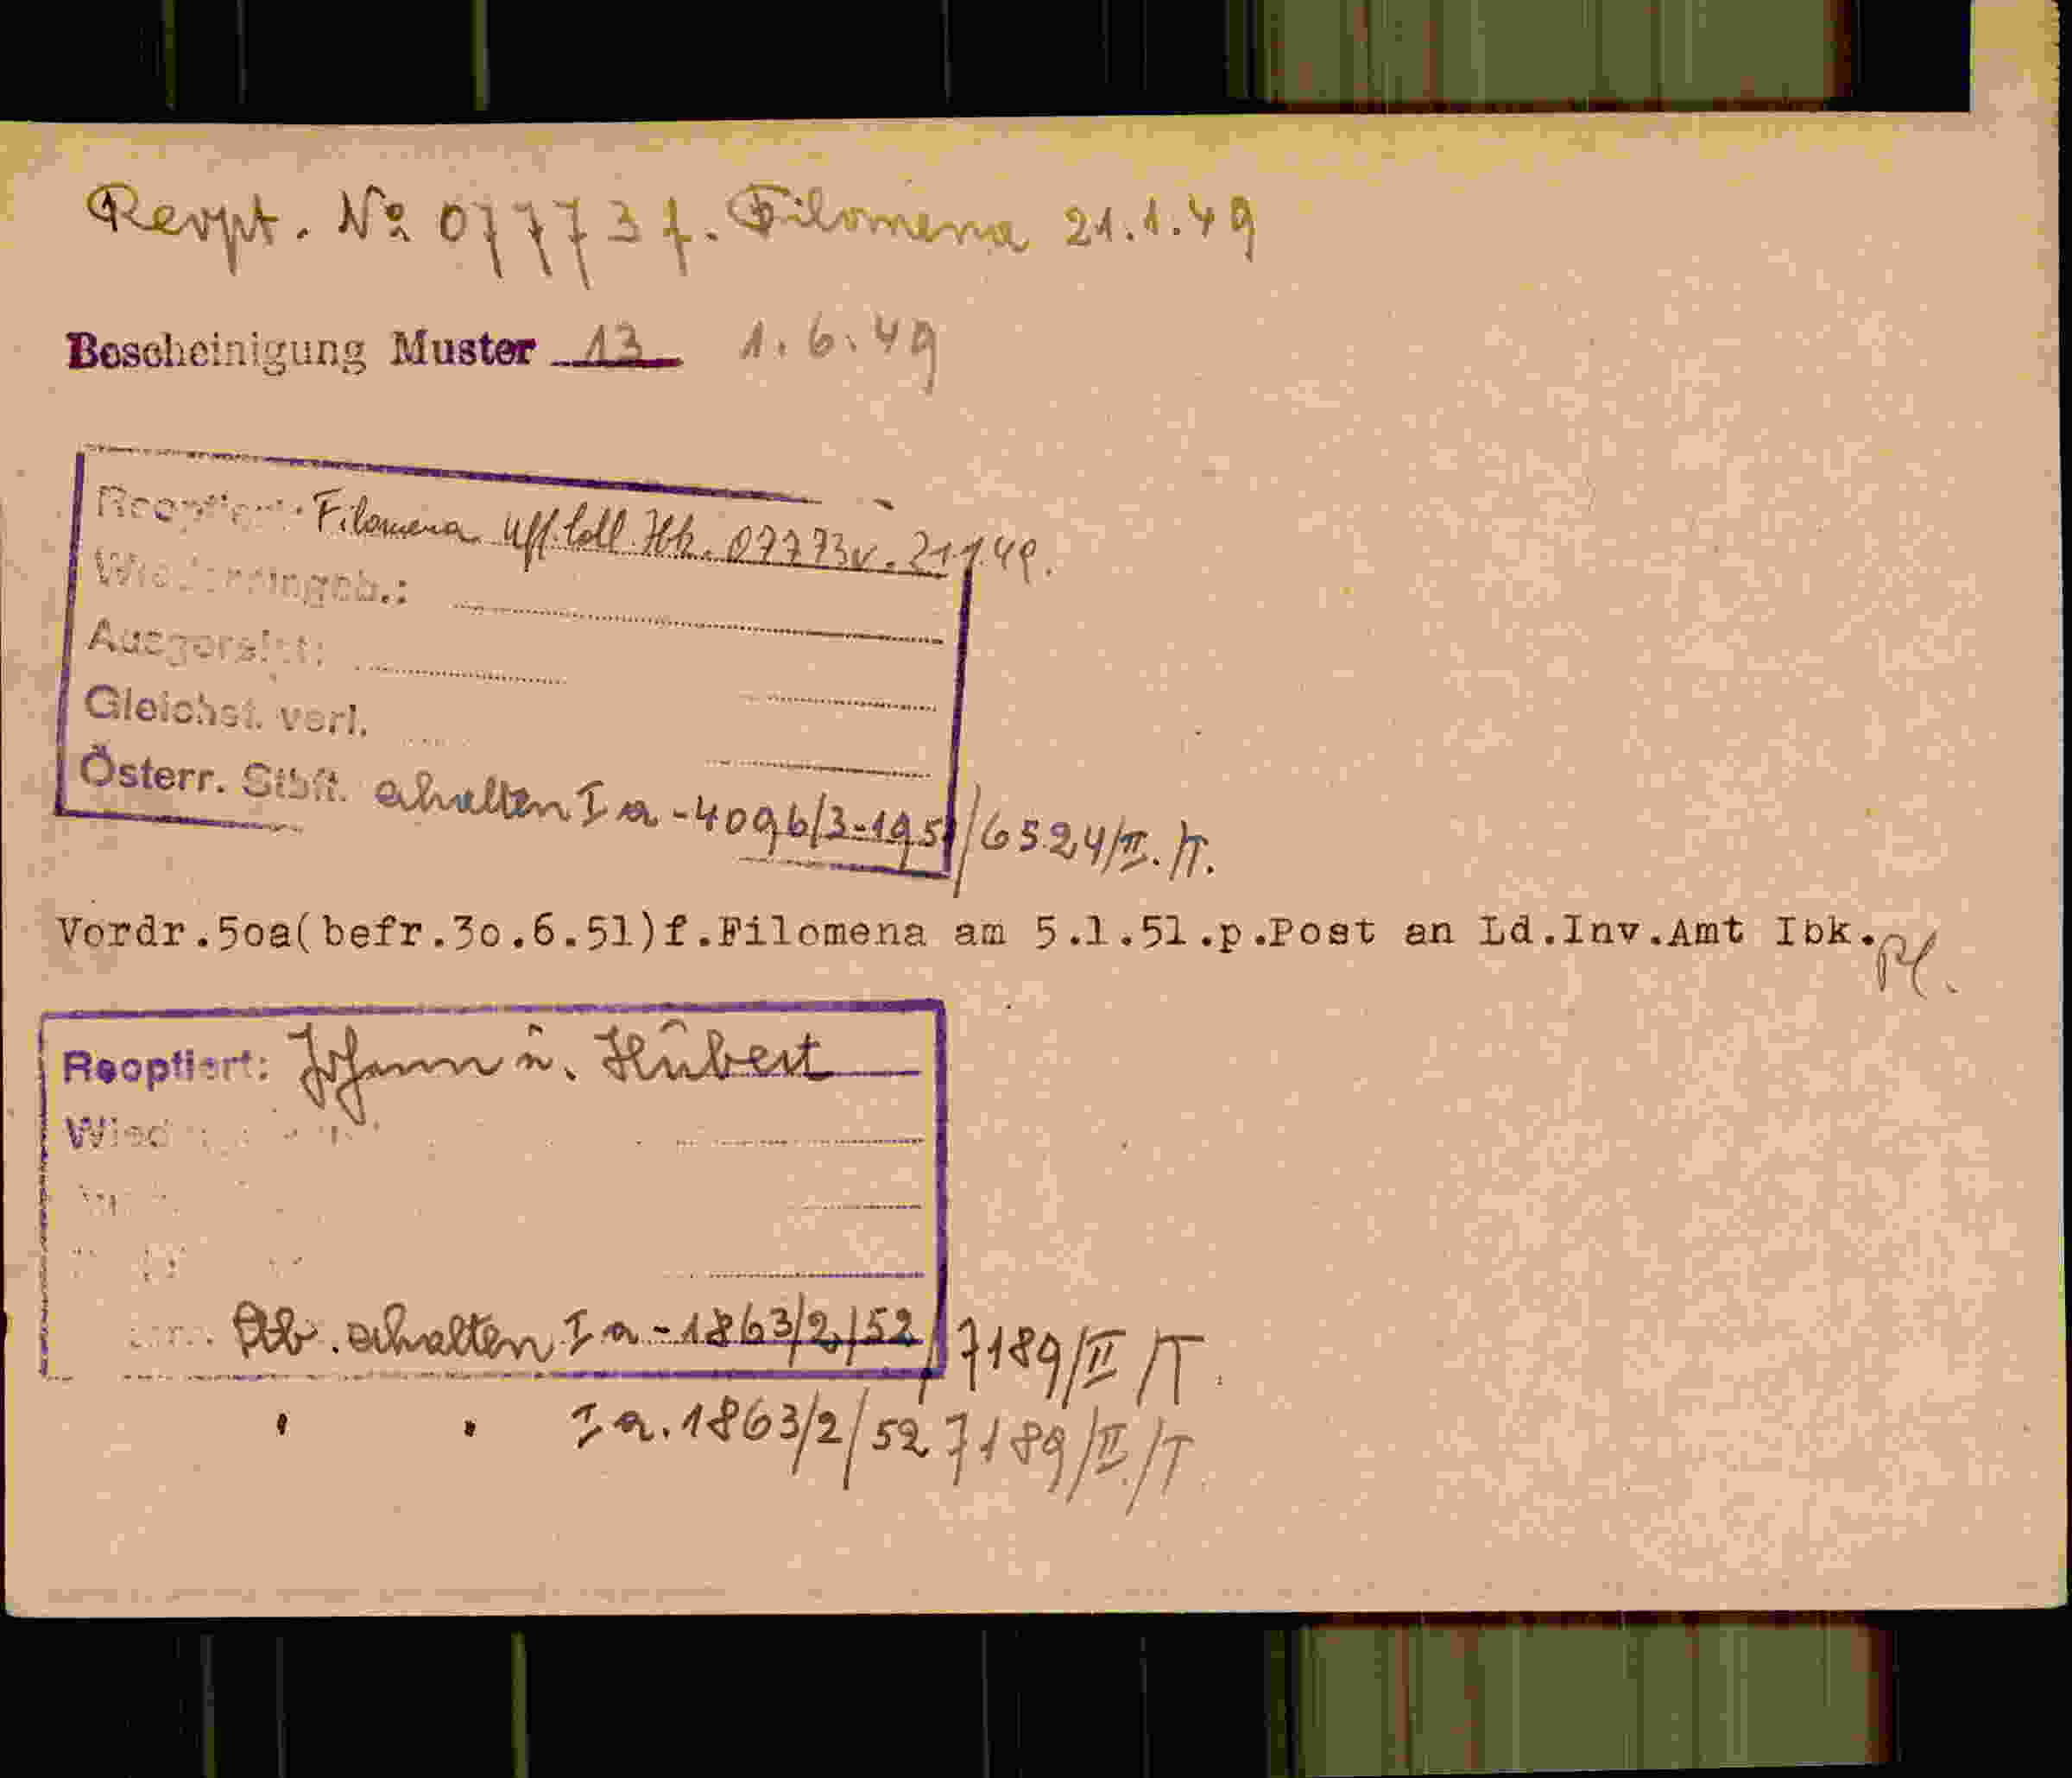 Reopt. No 07773 f. Filomena 21.1.49
Bescheinigung Muster 13 1.6.49
Reoptiert: Filomena Uff. Coll. Ibk. 07773 v. 21.1.49.
Wiedereingeb.:
Ausgereist:
Gleichst. verl.
Österr. Stbft. erhalten I a - 4096/3-1951/6524/II./T.
Vordr.5oa(befr.3o.6.51)f.Filomena am 5.1.51.p.Post an Ld.Inv.Amt Ibk.
Reoptiert: Johann u. Hubert
Wied
Stb. erhalten I a - 1863/2/52/7189/II/T.
" " I a. 1863/2/52 7189/II./T